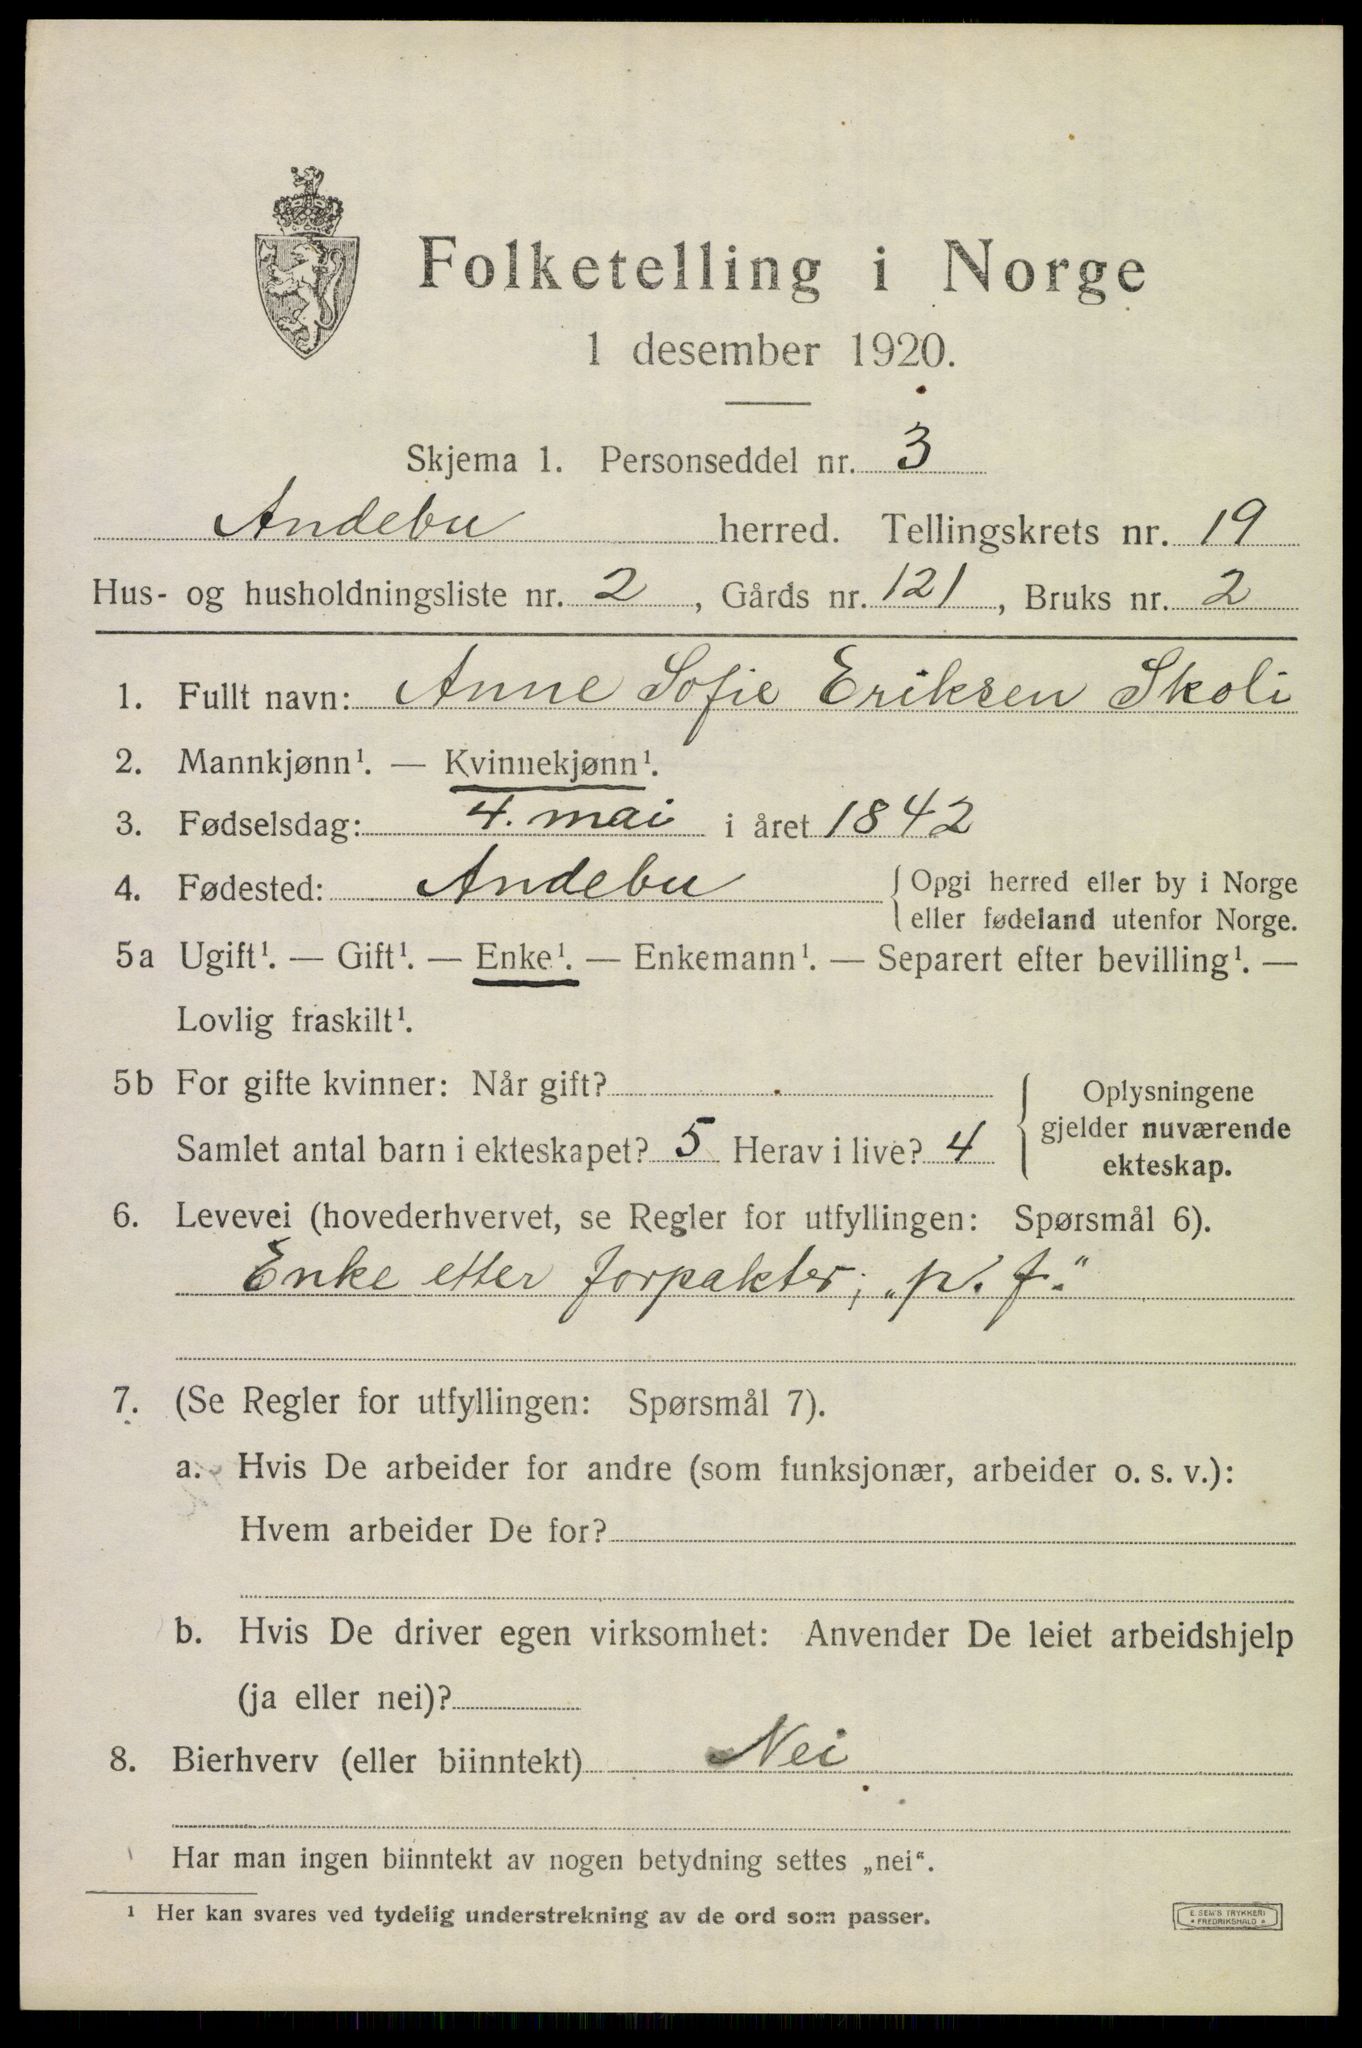 Folketelling i Norge
1 desember 1920.
Skjema 1. Personseddel nr. 3
Andebu herred. Tellingskrets nr. 19
Hus- og husholdningsliste nr. 2, Gårds nr. 121, Bruks nr. 2
1. Fullt navn: Anne Sofie Eriksen Skoli
2. Mannkjønn¹. — Kvinnekjønn¹.
3. Fødselsdag: 4. mai i året 1842
4. Fødested: Andebu { Opgi herred eller by i Norge
eller fødeland utenfor Norge.
5a Ugift¹. — Gift¹. — Enke¹. — Enkemann¹. — Separert efter bevilling¹. —
Lovlig fraskilt¹.
5b For gifte kvinner: Når gift?
Samlet antal barn i ekteskapet? 5 Herav i live? 4
Oplysningene
gjelder nuværende
ekteskap.
6. Levevei (hovederhvervet, se Regler for utfyllingen: Spørsmål 6).
Enke etter forpakter; „p. f."
7. (Se Regler for utfyllingen: Spørsmål 7).
a. Hvis De arbeider for andre (som funksjonær, arbeider o. s. v.):
Hvem arbeider De for?
b. Hvis De driver egen virksomhet: Anvender De leiet arbeidshjelp
(ja eller nei)?
8. Bierhverv (eller biinntekt) Nei
Har man ingen biinntekt av nogen betydning settes „nei“.
¹ Her kan svares ved tydelig understrekning av de ord som passer.
E. SEM'S TRYKKERI
• FREDRIKSHALD •